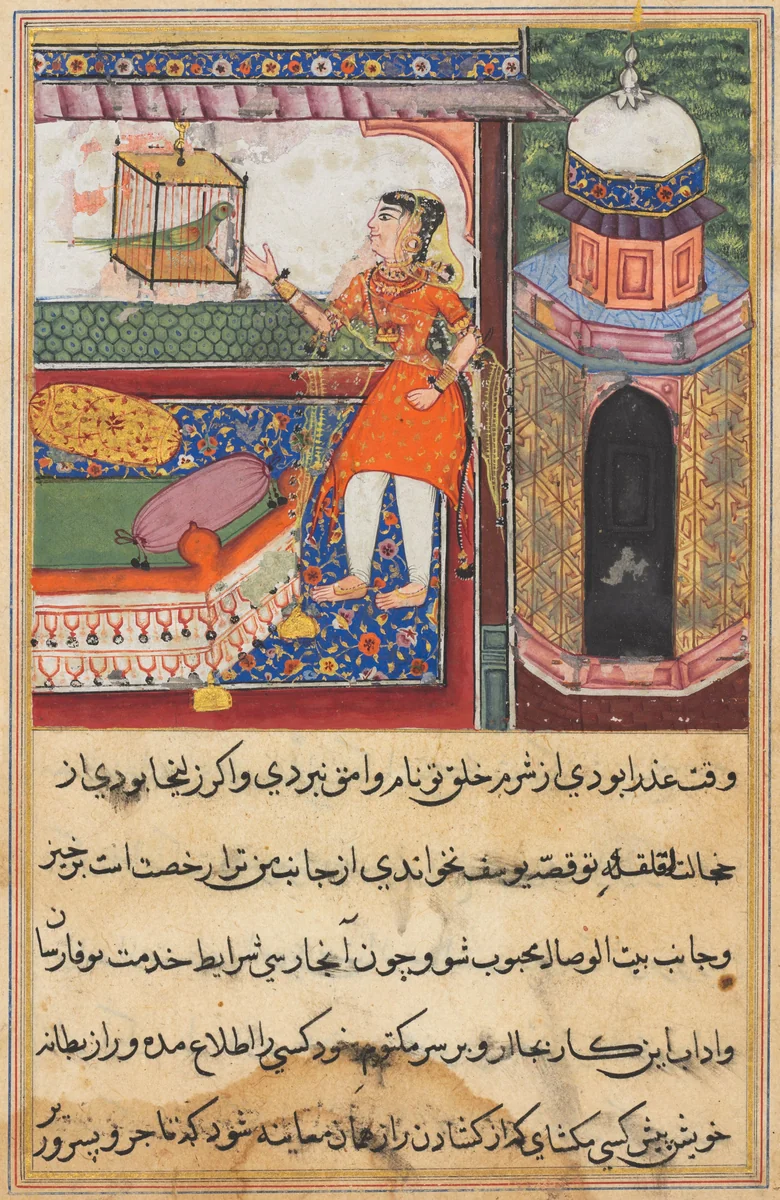 وقت عذرا بودي از شرم خلق تو نام وامق نبردي و اکر زلیخا بودي از
خجالت قلقله تو قصّه یوسف نخواندي از جانب من ترا رخصت است برخیز
و جانب بیت الوصال محبوب شو و چون آنجا رسي شرایط خدمت بوفا رسان
و اداب این کار بجا ار و بر سر مکتوم خود کسي را اطلاع مده و راز بطانه
خویش پیش کسي مکشاي که از کشادن راز همان معاینه شود که تاجر و پسر ور بر